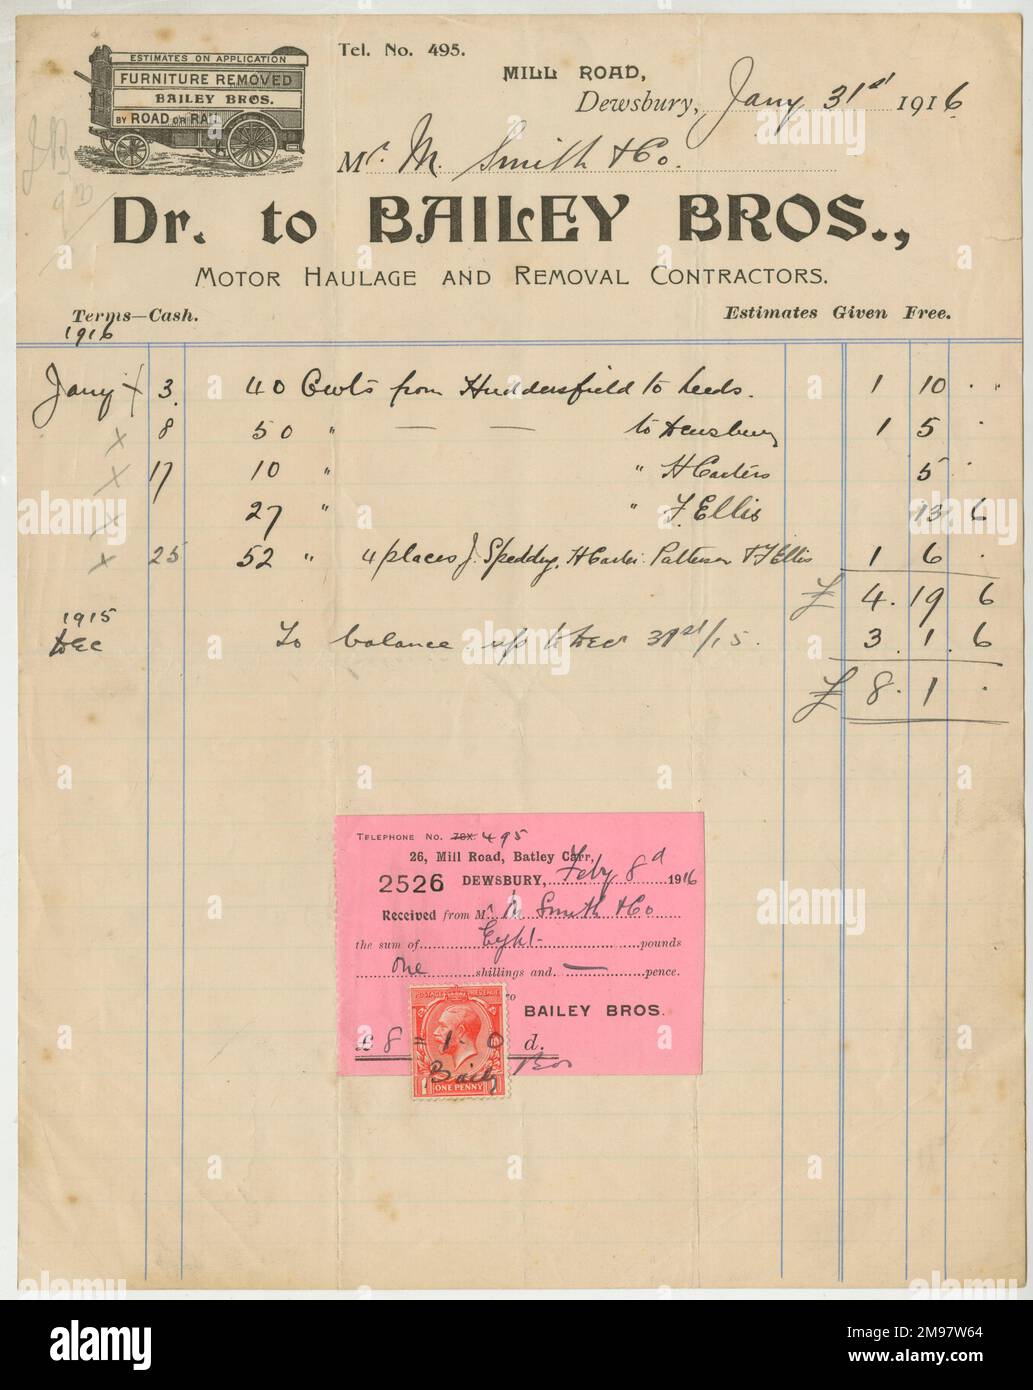 Tel. No. 495.
ESTIMATES ON APPLICATION
FURNITURE REMOVED
BAILEY BROS.
BY ROAD OR RAIL
MILL ROAD,
Dewsbury, Jany 31st 1916
Mr. M. Smith & Co.
Dr. to BAILEY BROS.,
MOTOR HAULAGE AND REMOVAL CONTRACTORS.
Terms—Cash. Estimates Given Free.
1916
Jany 3. 40 Cwts from Huddersfield to Leeds. 1 10 . "
x 8 50 " — — to Dewsbury 1 5 .
x 17 10 " " H Carters 5 .
x 27 " " F. Ellis 13 6
x 25 52 " 4 places J. Spedding, H Carter. Patterson & F Ellis 1 6 .
£ 4. 19 6
1915
Dec To balance up to Dec 31st/15. 3. 1. 6
£ 8. 1 .
TELEPHONE NO. 70X. 495
26, Mill Road, Batley Carr,
2526 DEWSBURY, Feby 8d 1916
Received from Mr M Smith & Co
the sum of Eight pounds
One shillings and — pence.
BAILEY BROS.
£ 8 = 1 - 0 d.
POSTAGE REVENUE
Baily Bos
ONE PENNY
alamy
Image ID: 2M97W64
www.alamy.com